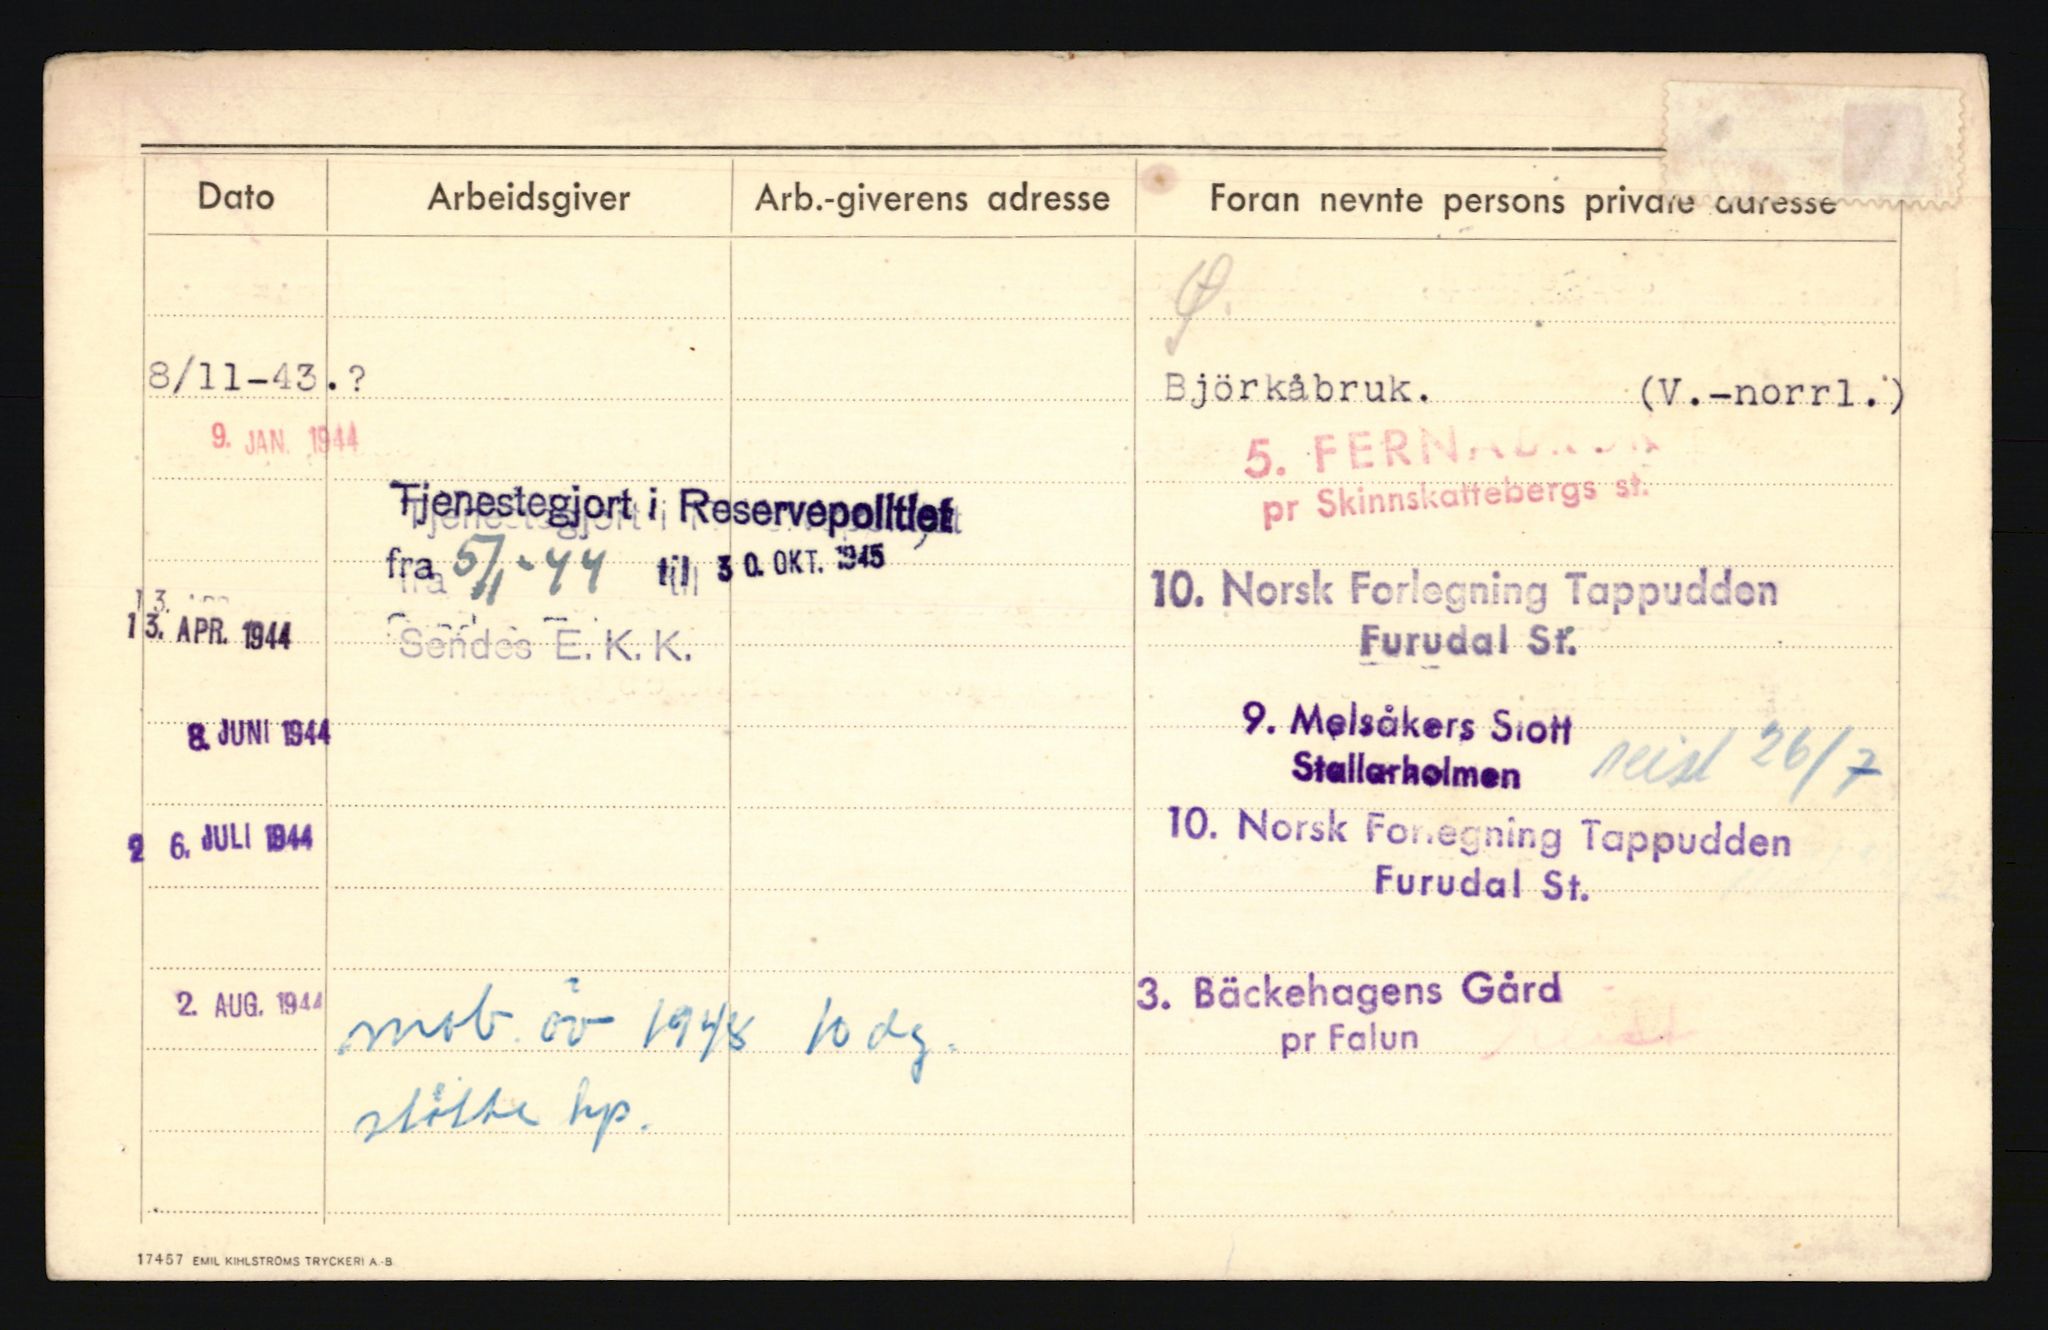 Dato Arbeidsgiver Arb.-giverens adresse Foran nevnte persons private adresse
Ø.
8/11-43.? Björkåbruk. (V.-norrl.)
9. JAN. 1944 5. FERNABRUK
pr Skinnskattebergs st.
Tjenestegjort i Reservepolitiet
fra 5/1-44 til 30. OKT. 1945
10. Norsk Forlegning Tappudden
13. APR. 1944 Sendes E. K. K. Furudal St.
8. JUNI 1944 9. Mälsåkers Slott
Stallarholmen reist 26/7
26. JULI 1944 10. Norsk Forlegning Tappudden
Furudal St.
2. AUG. 1944 mob. öv 1948 10 dg. 3. Bäckehagens Gård
pr Falun reist
støtte kp.
17457 EMIL KIHLSTRÖMS TRYCKERI A.-B